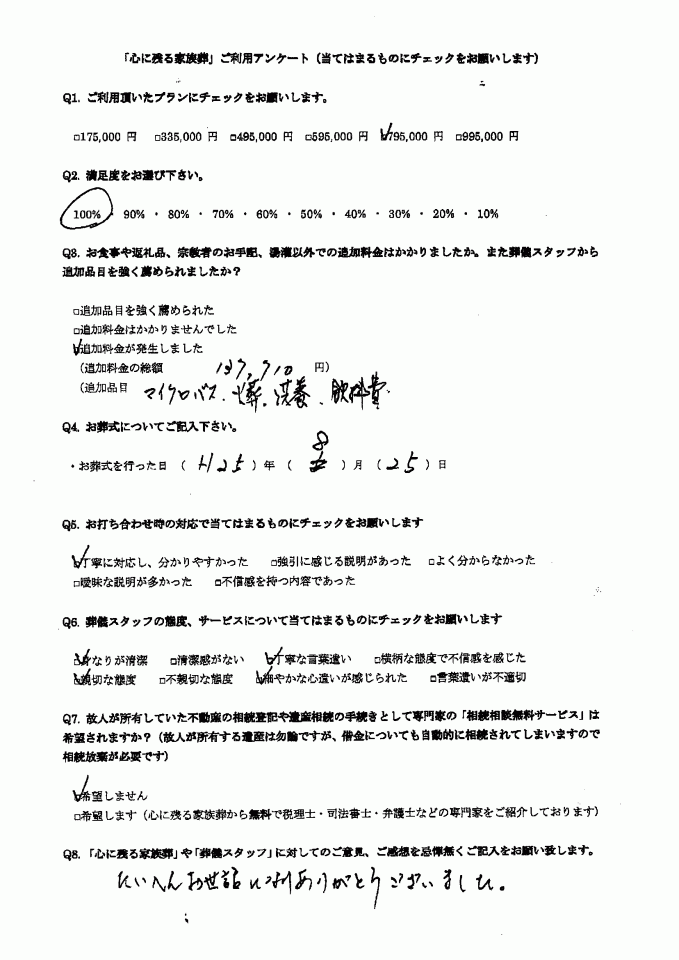 「心に残る家族葬」ご利用アンケート（当てはまるものにチェックをお願いします）
Q1. ご利用頂いたプランにチェックをお願いします。
□175,000 円 □335,000 円 □495,000 円 □595,000 円 ☑795,000 円 □995,000 円
Q2. 満足度をお選び下さい。
100% ・ 90% ・ 80% ・ 70% ・ 60% ・ 50% ・ 40% ・ 30% ・ 20% ・ 10%
Q3. お食事や返礼品、宗教者のお手配、湯灌以外での追加料金はかかりましたか。また葬儀スタッフから
追加品目を強く薦められましたか？
□追加品目を強く薦められた
□追加料金はかかりませんでした
☑追加料金が発生しました
（追加料金の総額 137,710 円）
（追加品目 マイクロバス、火葬、供養、飲料費
Q4. お葬式についてご記入下さい。
・お葬式を行った日 （ H25 ）年 （ 8 ）月 （ 25 ）日
Q5. お打ち合わせ時の対応で当てはまるものにチェックをお願いします
☑丁寧に対応し、分かりやすかった □強引に感じる説明があった □よく分からなかった
□曖昧な説明が多かった □不信感を持つ内容であった
Q6. 葬儀スタッフの態度、サービスについて当てはまるものにチェックをお願いします
☑身なりが清潔 □清潔感がない ☑丁寧な言葉遣い □横柄な態度で不信感を感じた
☑親切な態度 □不親切な態度 ☑細やかな心遣いが感じられた □言葉遣いが不適切
Q7. 故人が所有していた不動産の相続登記や遺産相続の手続きとして専門家の「相続相談無料サービス」は
希望されますか？（故人が所有する遺産は勿論ですが、借金についても自動的に相続されてしまいますので
相続放棄が必要です）
☑希望しません
□希望します（心に残る家族葬から無料で税理士・司法書士・弁護士などの専門家をご紹介しております）
Q8. 「心に残る家族葬」や「葬儀スタッフ」に対してのご意見、ご感想を忌憚無くご記入をお願い致します。
たいへんお世話になりありがとうございました。